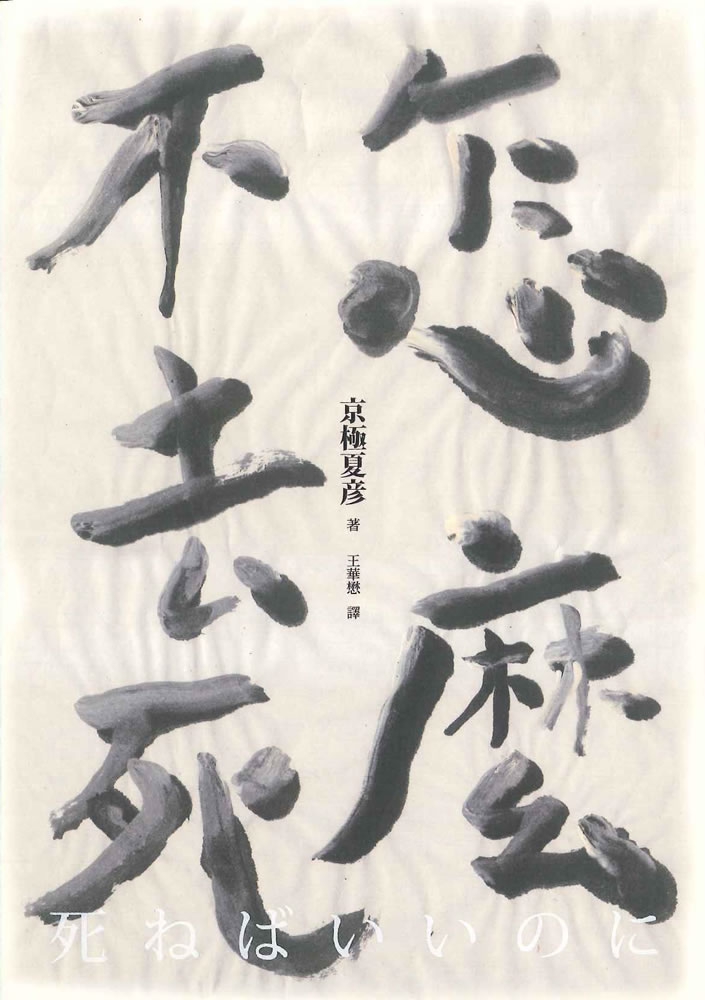 怎麼
不去死
京極夏彦 著 王華懋 譯
死ねばいいのに